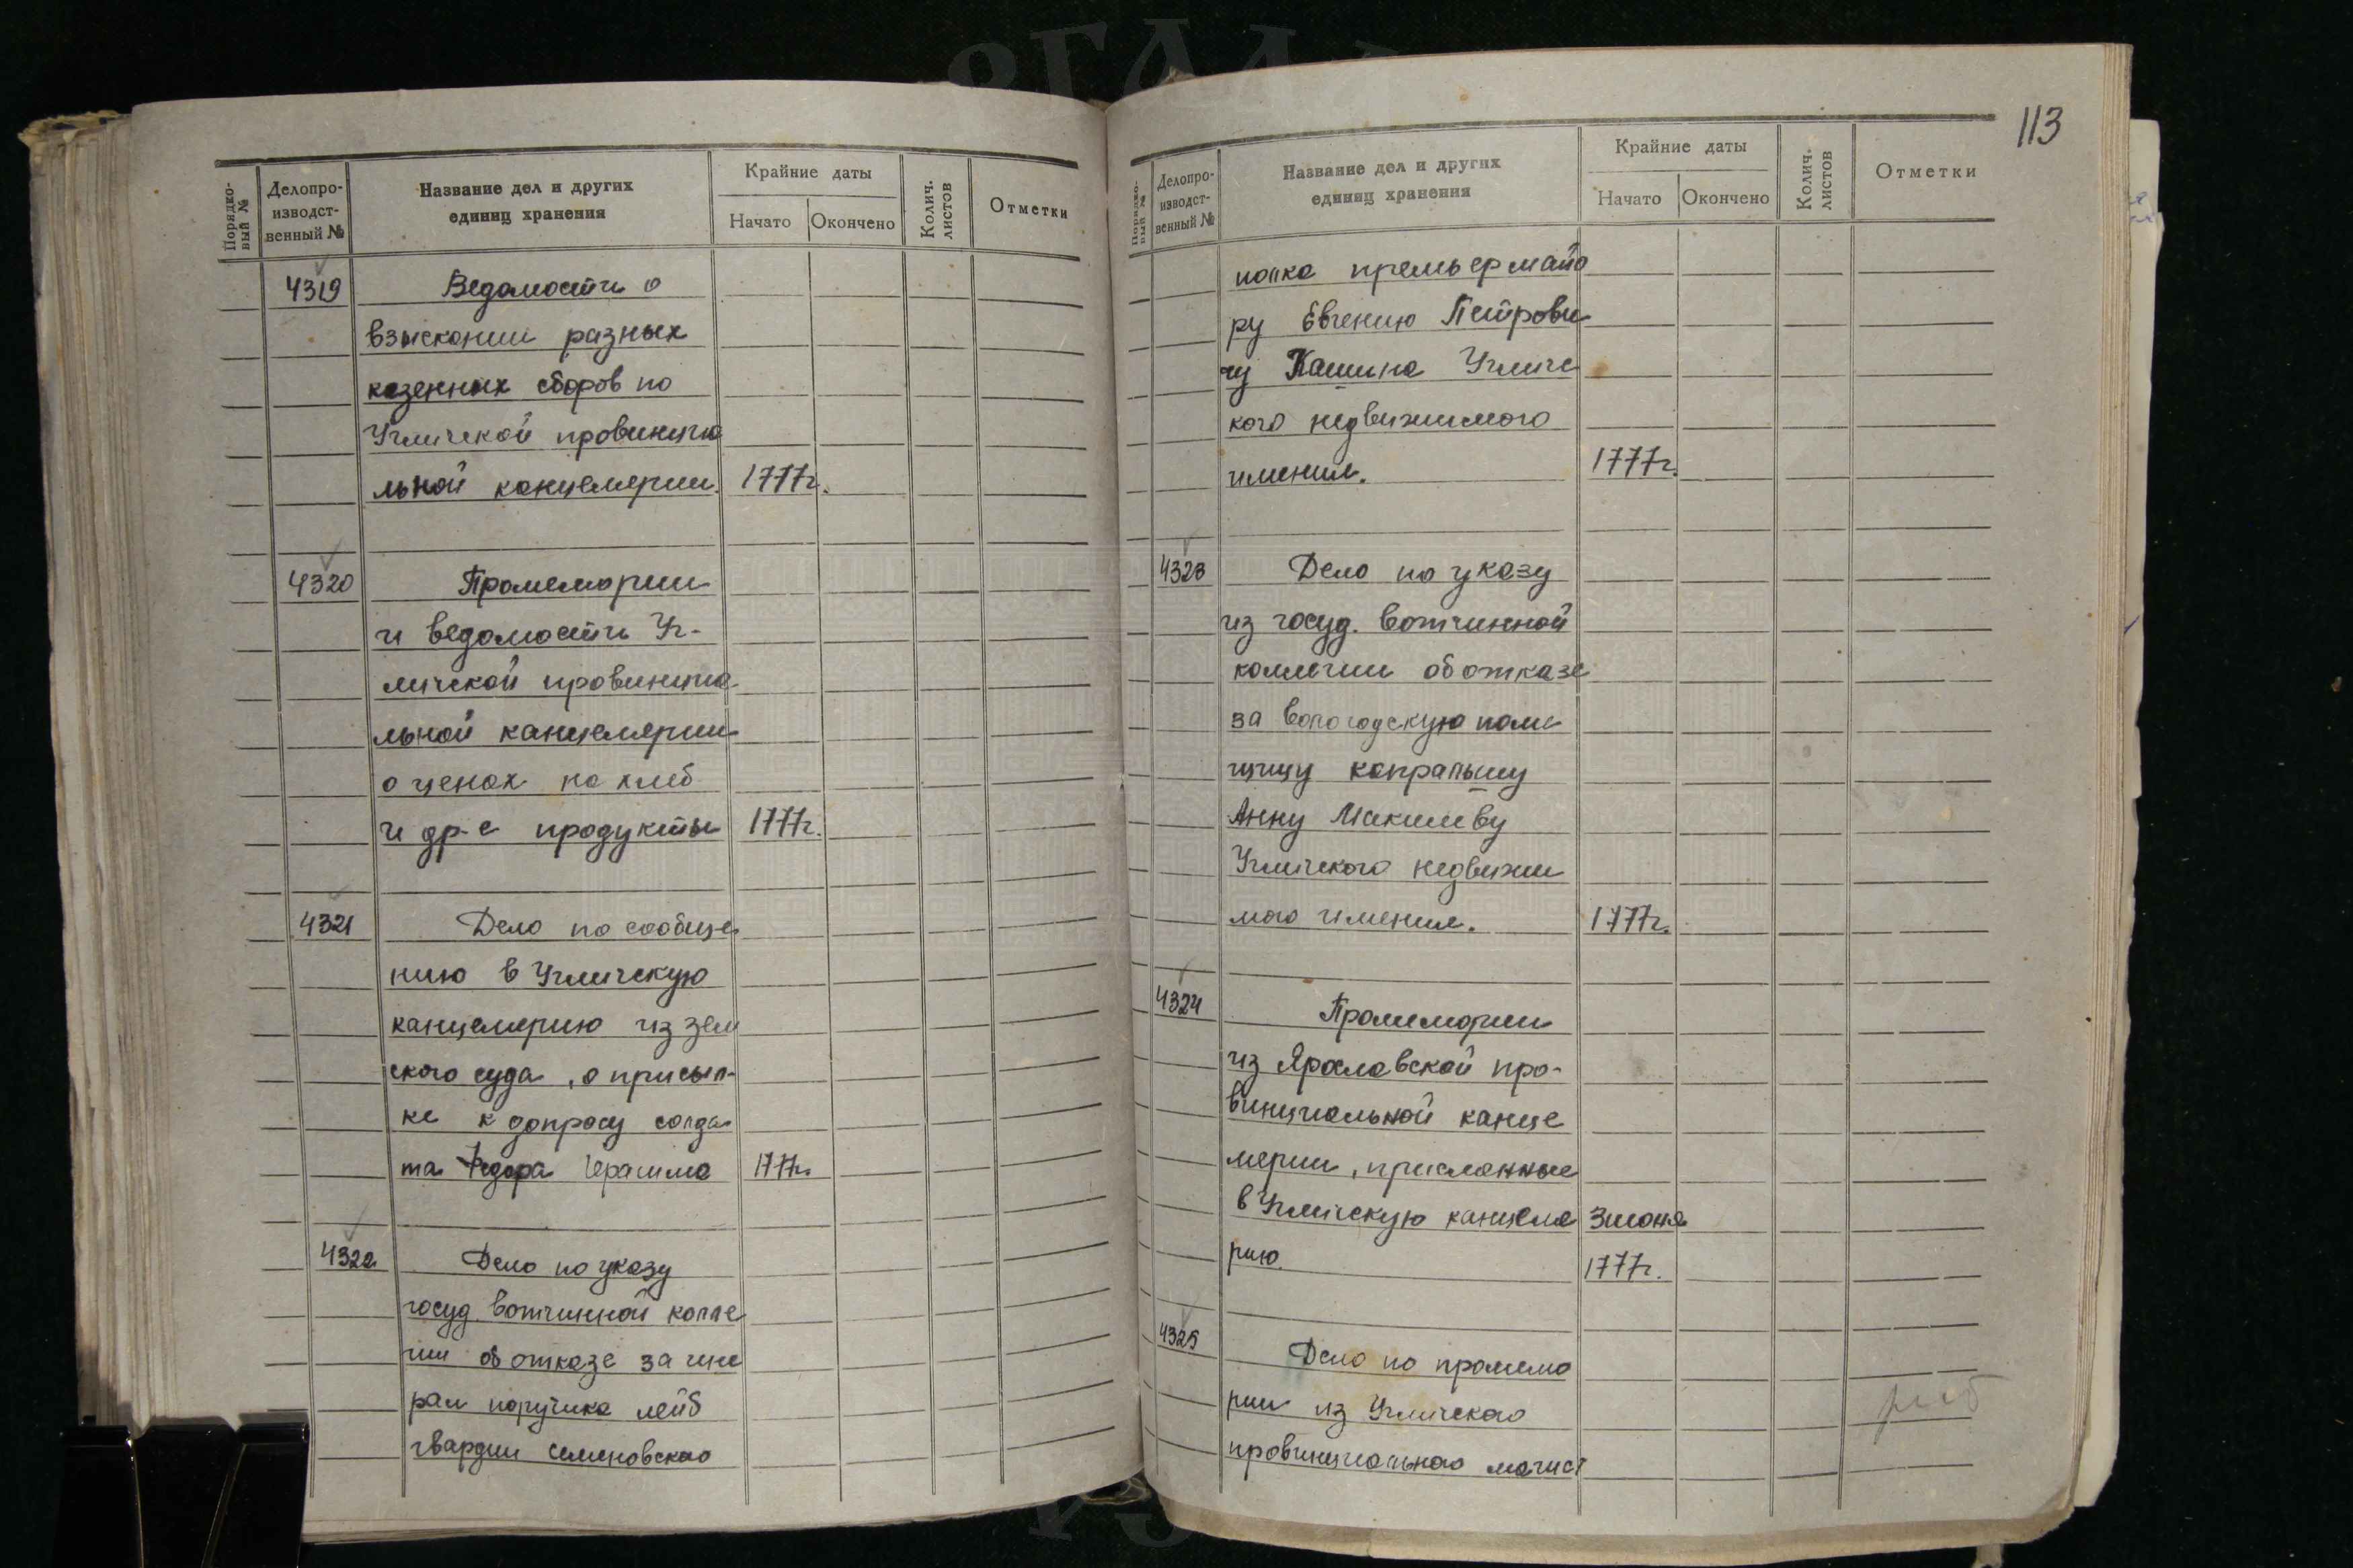 Порядко-
вый №
Делопро-
изводст-
венный №
Название дел и других
единиц хранения
Крайние даты
Начато
Окончено
Колич.
листов
Отметки
4319 Ведомости о
взыскании разных
казенных сборов по
Угличской провинциа
льной канцелярии. 1777г.
4320 Промемории
и ведомости Уг-
личской провинциа-
льной канцелярии
о ценах на хлеб
и др-е продукты 1777г.
4321 Дело по сообще
нию в Угличскую
канцелярию из зем
ского суда, о присыл-
ке к допросу солда
та Федора Герасима 1777г.
4322 Дело по указу
госуд. вотчинной колле
гии об отказе за гене
рал поручика лейб
гвардии Семеновского
113
Порядко-
вый №
Делопро-
изводст-
венный №
Название дел и других
единиц хранения
Крайние даты
Начато
Окончено
Колич.
листов
Отметки
полка премьер майо
ру Евгению Петрови
чу Кашина Угличс
кого недвижимого
имения. 1777г.
4323 Дело по указу
из госуд. вотчинной
коллегии об отказе
за вологодскую поме
щицу капральшу
Анну
Угличского недвижи
мого имения. 1777г.
4324 Промемории
из Ярославской про-
винциальной канце
лярии, присланные
в Угличскую канцеля 3 июня
рию. 1777г.
4325 Дело по промемо
рии из Угличского
провинциального магист